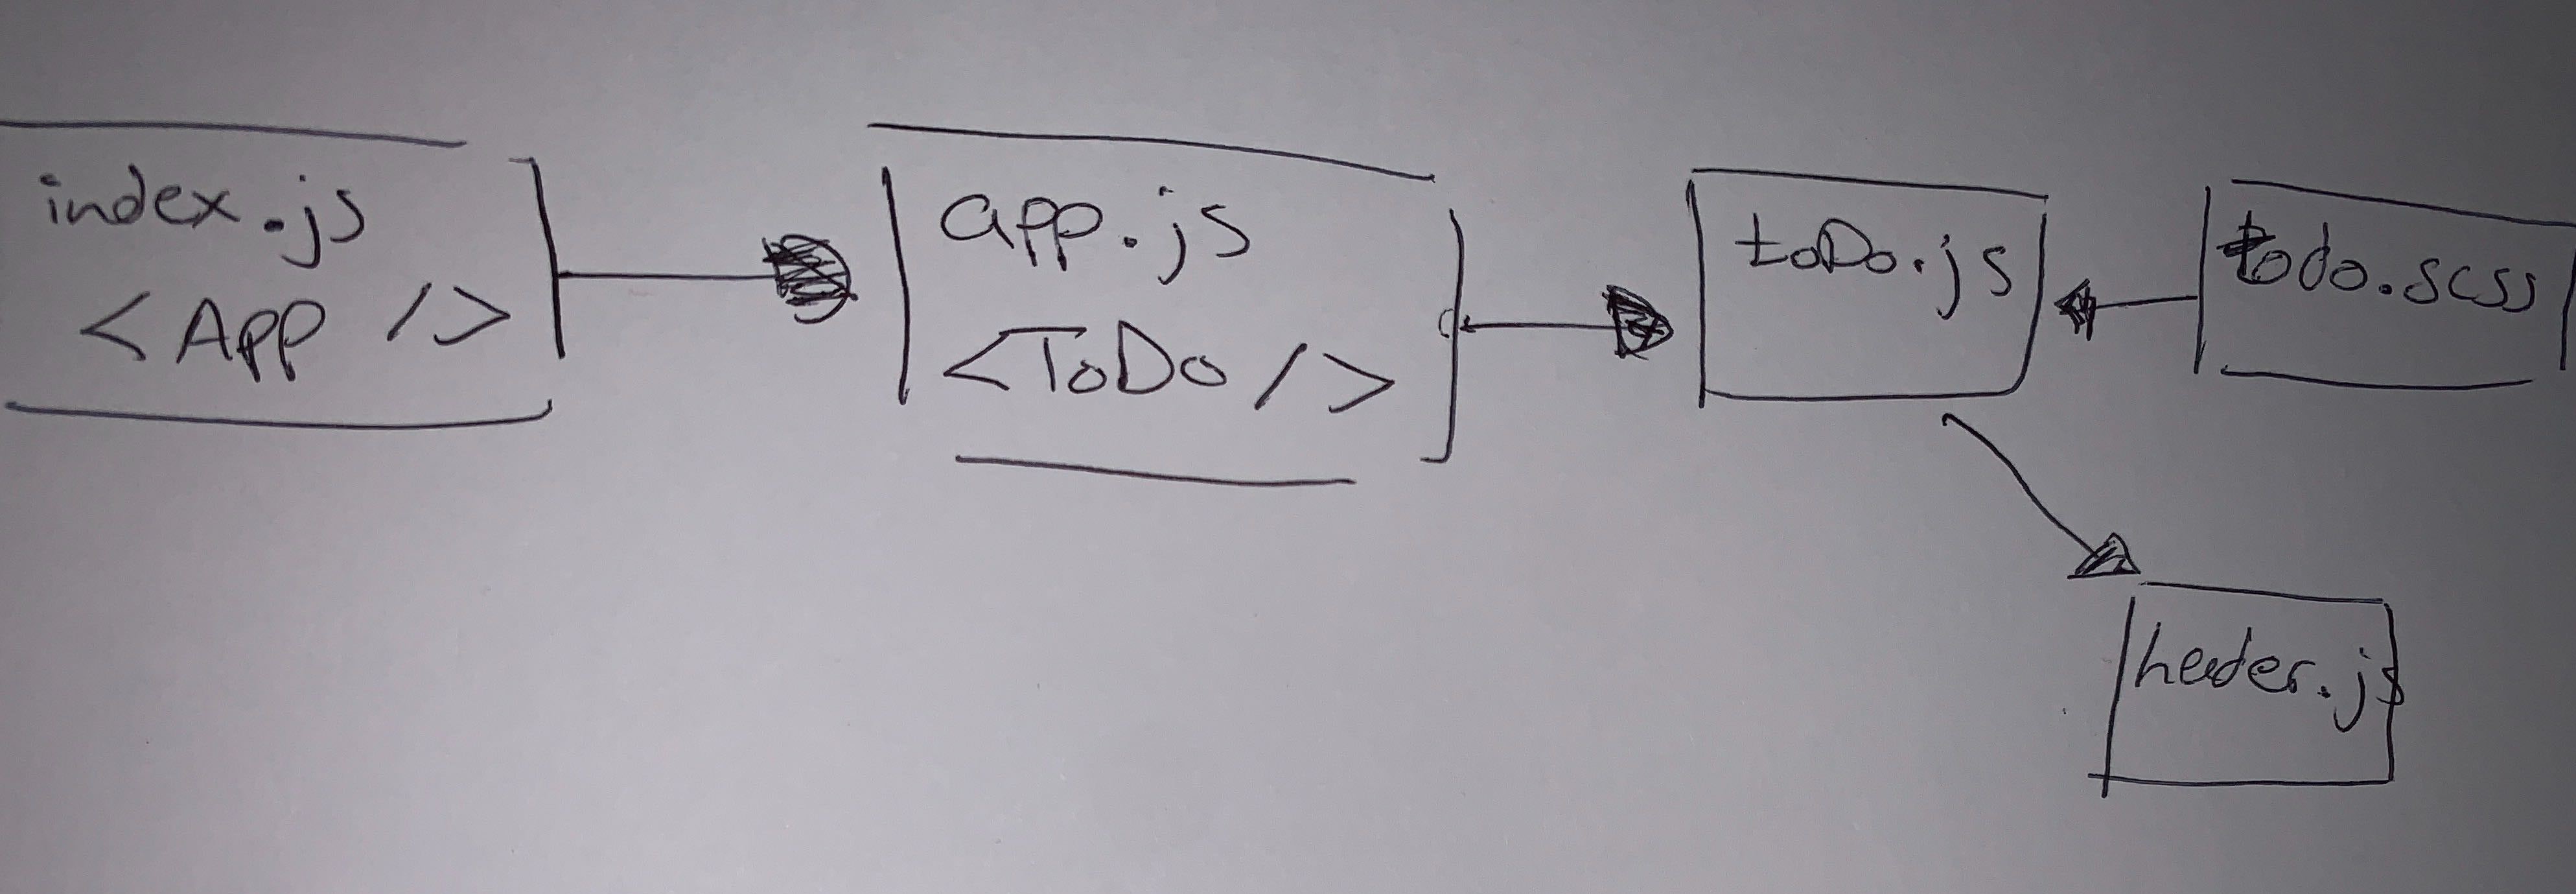 index.js
<App />
app.js
<ToDo />
toDo.js
todo.scss
header.js